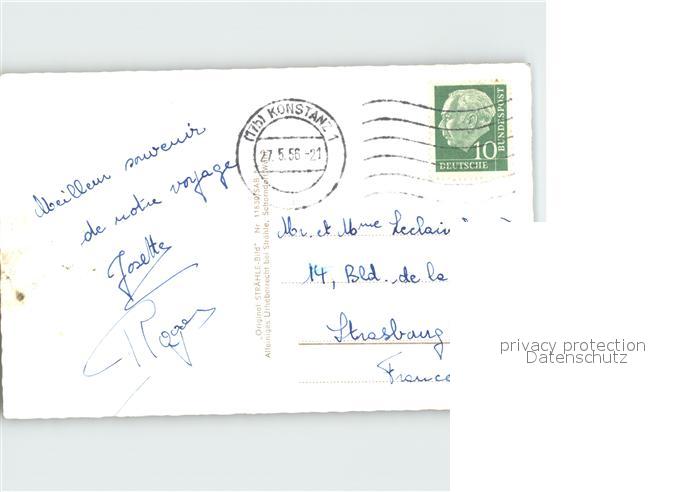 (17b) KONSTANZ 1
27.5.56-21
10
DEUTSCHE
BUNDESPOST
Meilleur souvenir
de notre voyage
Josette
Roger
„Original-STRÄHLE-Bild" Nr. 11830/SAB
Alleiniges Urheberrecht bei Strähle, Schorndorf
Mr. et Mme Leclair
14, Bld. de la
Strasbourg
France
privacy protection
Datenschutz